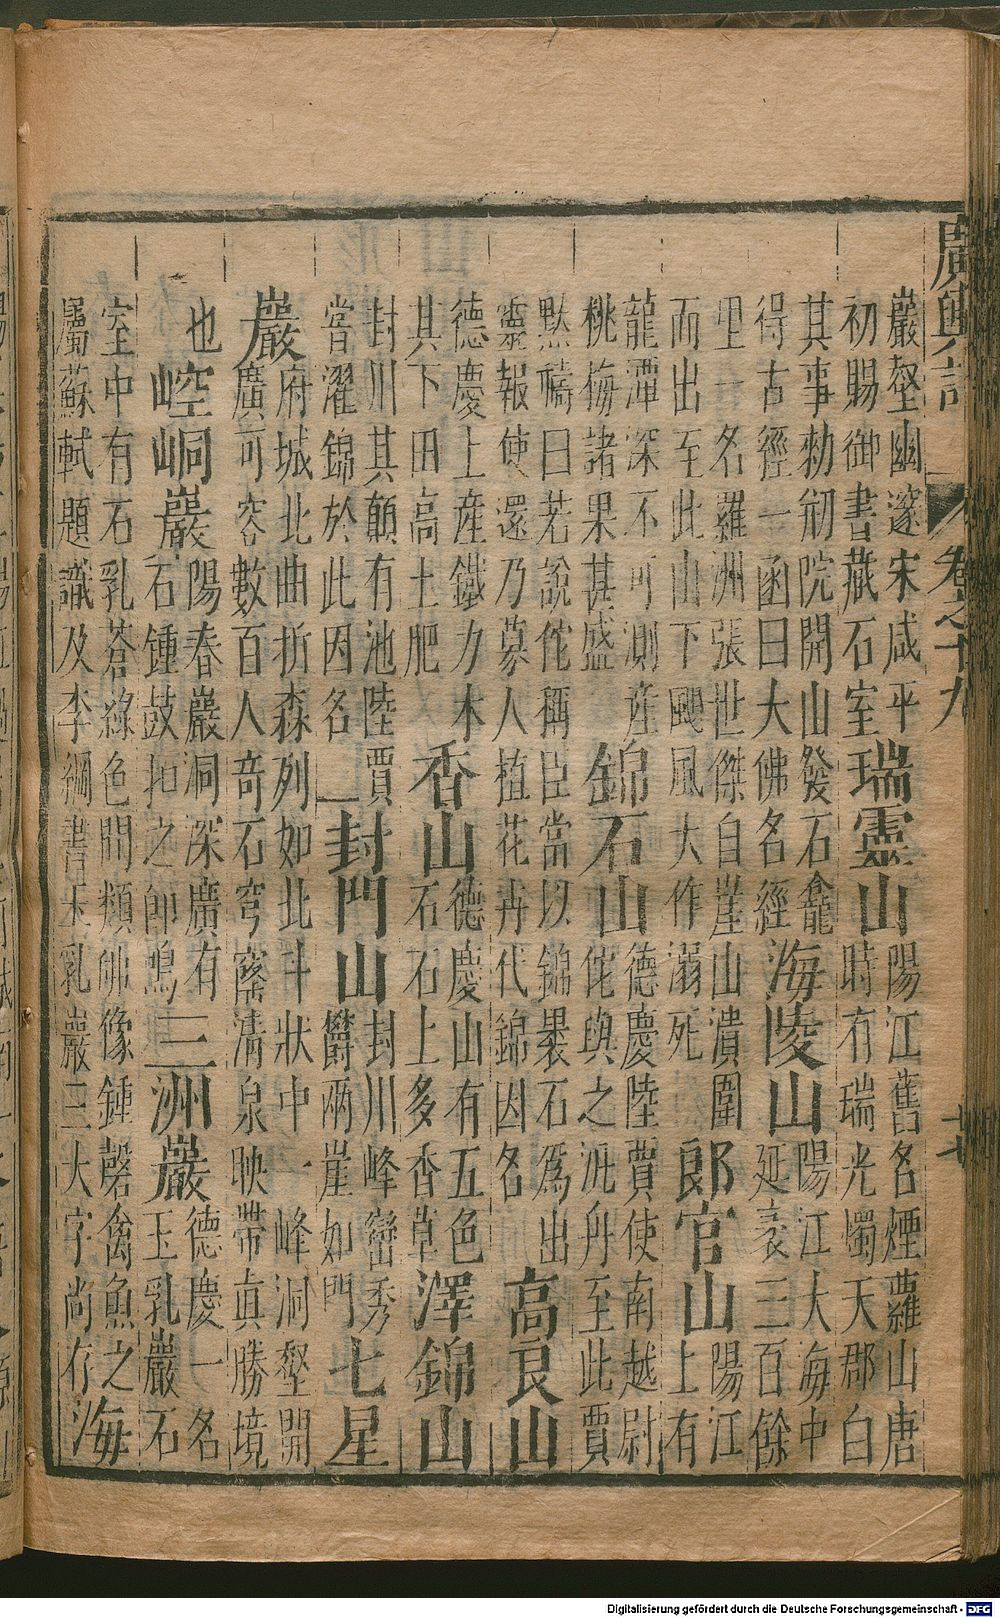 廣輿記 卷之十九 十七
巖壑幽邃宋咸平
初賜御書藏石室
瑞靈山
陽江舊名煙蘿山唐
時有瑞光燭天郡白
其事勑剏院開山發石龕
得古經一函曰大佛名經
海陵山
陽江大海中
延袤三百餘
里一名羅洲張世傑自崖山潰圍
而出至此山下颶風大作溺死
郎官山
陽江
上有
龍潭深不可測產
桃梅諸果甚盛
錦石山
德慶陸賈使南越尉
佗與之泝舟至此賈
默禱曰若說佗稱臣當以錦裹石爲出
靈報使還乃募人植花卉代錦因名
高良山
德慶上產鐵力木
其下田高土肥
香山
德慶山有五色
石石上多香草
澤錦山
封川其顛有池陸賈
嘗濯錦於此因名
封門山
封川峰巒秀
欝兩崖如門
七星
巖
府城北曲折森列如北斗狀中一峰洞壑開
廣可容數百人奇石穹窿清泉映帶真勝境
也
崆峒巖
陽春巖洞深廣有
石鍾鼓扣之卽鳴
三洲巖
德慶一名
玉乳巖石
室中有石乳蒼綠色間類佛像鍾磬禽魚之
屬蘇軾題識及李綱書玉乳巖三大字尚存
海
Digitalisierung gefördert durch die Deutsche Forschungsgemeinschaft - DFG